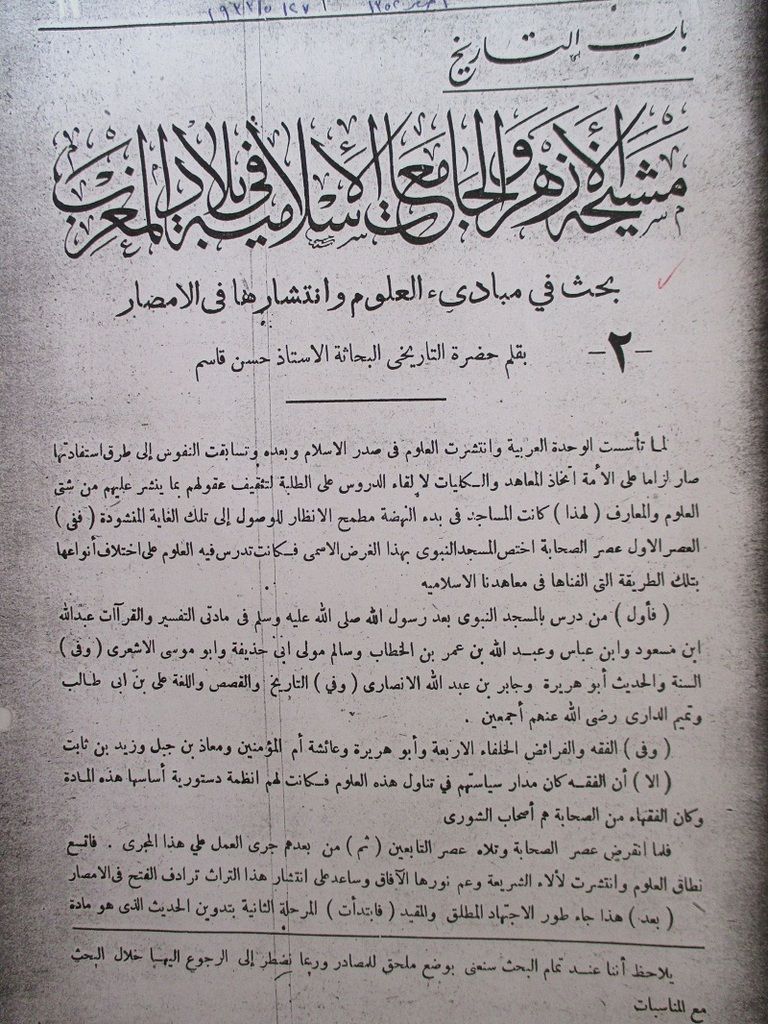 باب التاريخ
مشيخة الأزهر والجامعات الإسلامية في بلاد المغرب
بحث في مبادىء العلوم وانتشارها فى الامصار
-٢- بقلم حضرة التاريخى البحاثة الاستاذ حسن قاسم
لما تأسست الوحدة العربية وانتشرت العلوم فى صدر الاسلام وبعده وتسابقت النفوس إلى طرق استفادتها
صار لزاما على الأمة اتخاذ المعاهد والكليات لالقاء الدروس على الطلبة لتثقيف عقولهم بما ينشر عليهم من شتى
العلوم والمعارف ( لهذا ) كانت المساجد فى بدء النهضة مطمح الانظار للوصول إلى تلك الغاية المنشودة ( ففى )
العصر الاول عصر الصحابة اختص المسجد النبوى بهذا الغرض الاسمى فكانت تدرس فيه العلوم على اختلاف أنواعها
بتلك الطريقة التى الفناها فى معاهدنا الاسلاميه
( فأول ) من درس بالمسجد النبوى بعد رسول الله صلى الله عليه وسلم فى مادتى التفسير والقراآت عبدالله
ابن مسعود وابن عباس وعبد الله بن عمر بن الخطاب وسالم مولى ابى حذيفة وابو موسى الاشعرى ( وفى )
السنة والحديث أبو هريرة وجابر بن عبد الله الانصارى ( وفي ) التاريخ والقصص واللغة على بن ابى طالب
وتميم الدارى رضى الله عنهم أجمعين .
( وفى ) الفقه والفرائض الخلفاء الاربعة وأبو هريرة وعائشة أم المؤمنين ومعاذ بن جبل وزيد بن ثابت
( الا ) أن الفقه كان مدار سياستهم في تناول هذه العلوم فكانت لهم انظمة دستورية أساسها هذه المادة
وكان الفقهاء من الصحابة هم أصحاب الشورى
فلما انقرض عصر الصحابة وتلاه عصر التابعين ( ثم ) من بعدهم جرى العمل علي هذا المجرى . فاتسع
نطاق العلوم وانتشرت لألاء الشريعة وعم نورها الآفاق وساعد على انتشار هذا التراث ترادف الفتح فى الامصار
( بعد ) هذا جاء طور الاجتهاد المطلق والمقيد ( فابتدأت ) المرحلة الثانية بتدوين الحديث الذى هو مادة
يلاحظ أننا عند تمام البحث سنعنى بوضع ملحق للمصادر وربما نضطر إلى الرجوع اليها خلال البحث
مع المناسبات